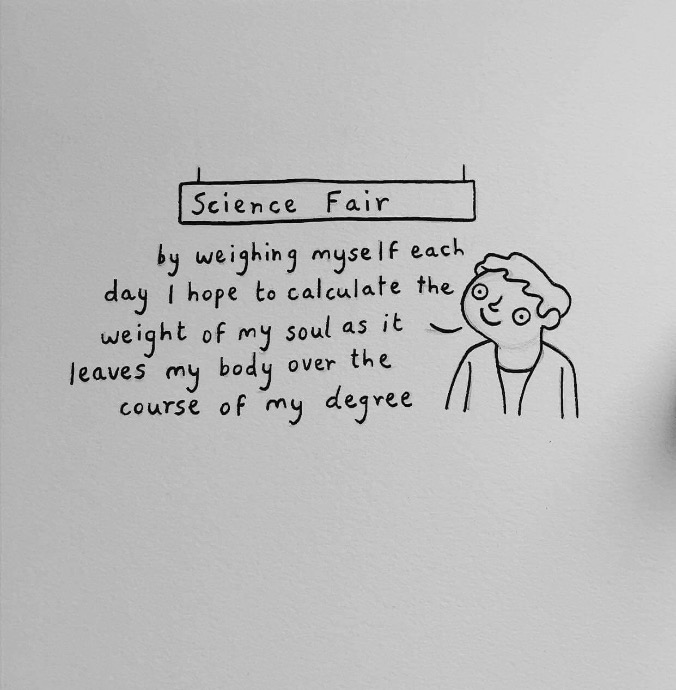 Science Fair
by weighing myself each
day I hope to calculate the
weight of my soul as it
leaves my body over the
course of my degree